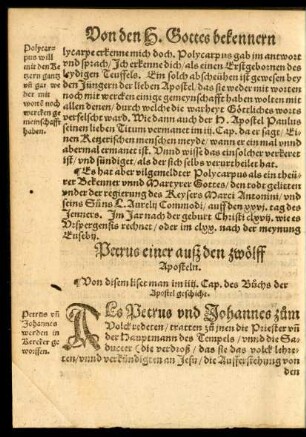 Von den H. Gottes bekennern
Polycarpus will mit den Ketzern gantz vñ gar weder mit wort noch wercken gemeinschafft haben.
lycarpe erkenne mich doch. Polycarpus gab im antwort
vnd sprach/ Ich erkenne dich/ als einen Erstgebornen des
leydigen Teuffels. Ein solch abscheühen ist gewesen bey
den Jüngern der lieben Apostel/ das sie weder mit worten
noch mit wercken einige gemeynschafft haben wolten mit
allen denen/ durch welche die warheyt Götliches worts
verfelscht ward. Wie dann auch der H. Apostel Paulus
seinen lieben Titum vermanet im iij. Cap. da er sagt/ Ei-
nen Ketzerischen menschen meyde/ wann er ein mal vnnd
abermal ermanet ist. Vnnd wisse das ein solcher verkeret
ist/ vnd sündiget/ als der sich selbs verurtheilet hat.
¶ Es hat aber vilgemeldter Polycarpus als ein theü-
rer Bekenner vnnd Martyrer Gottes/ den todt gelitten
vnder der regierung des Keysers Marci Antonini/ vnd
seins Süns L. Aurelij Commodi/ auff den xxvj. tag des
Jenners. Im Jar nach der geburt Christi
Vrspergensis rechnet/ oder im clxx. nach der meynung
Eusebij.
Petrus einer auß den zwölff
Aposteln.
¶ Von disem liset man im iiij. Cap. des Büchs der
Apostel geschicht.
Petrus vñ Johannes werden in Kercker geworffen.
ALs Petrus vnd Johannes zům
Volck redeten/ tratten zů jnen die Priester vñ
der Hauptmann des Tempels/ vnnd die Sa-
duceer (die verdroß/ das sie das volck lehre-
ten/ vnnd verkündigten an Jesu/ die Aufferstehung von
den